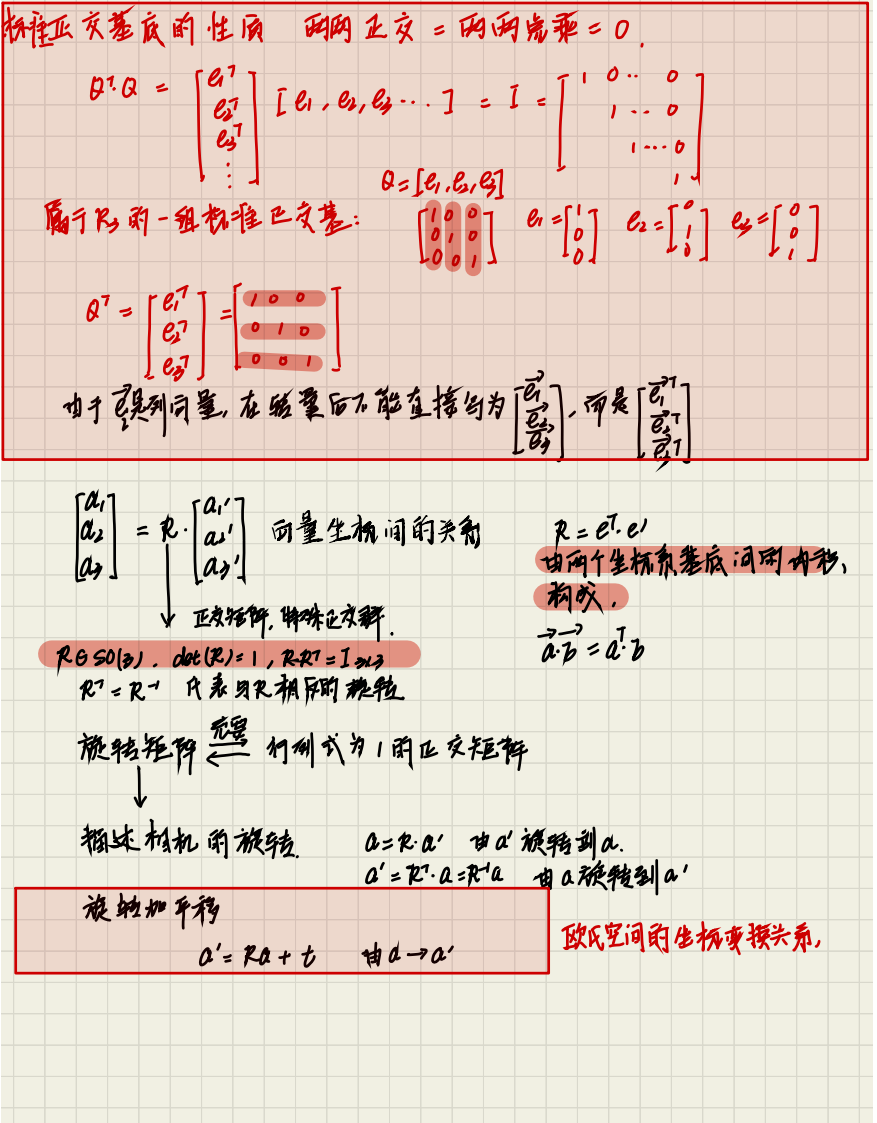 标准正交基底的性质 两两正交 = 两两点乘 = 0.
Qᵀ·Q = [e₁ᵀ e₂ᵀ e₃ᵀ ⋮] [e₁, e₂, e₃ ···] = I = [1 0 ·· 0
1 ·· 0
1 ··· 0
1]
Q = [e₁, e₂, e₃]
属于R₃的一组标准正交基: [1 0 0 0 1 0 0 0 1] e₁ = [1 0 0] e₂ = [0 1 0] e₃ = [0 0 1]
Qᵀ = [e₁ᵀ e₂ᵀ e₃ᵀ] = [1 0 0 0 1 0 0 0 1]
由于 e⃗ᵢ是列向量, 在转置后不能直接写为 [e⃗₁ e⃗₂ e⃗₃], 而是 [e⃗₁ᵀ e⃗₂ᵀ e⃗₃ᵀ]
[a₁ a₂ a₃] = R · [a₁' a₂' a₃'] 向量坐标间的关系
R = eᵀ·e'
由两个坐标系基底间的内积,
构成,
a⃗·b⃗ = aᵀ·b
正交矩阵, 特殊正交群.
R∈SO(3), det(R)=1, R·Rᵀ=I₃ₓ₃
Rᵀ = R⁻¹ 代表与R相反的旋转
旋转矩阵 ⇌ 充要 行列式为1的正交矩阵
↓
描述相机的旋转. a = R·a' 由a'旋转到a.
a' = Rᵀ·a = R⁻¹a 由a旋转到a'
旋转加平移
a' = Ra + t 由a → a'
欧氏空间的坐标变换关系,